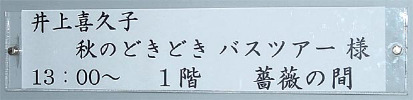 井上喜久子
秋のどきどき バスツアー 様
13：00〜　1階　薔薇の間